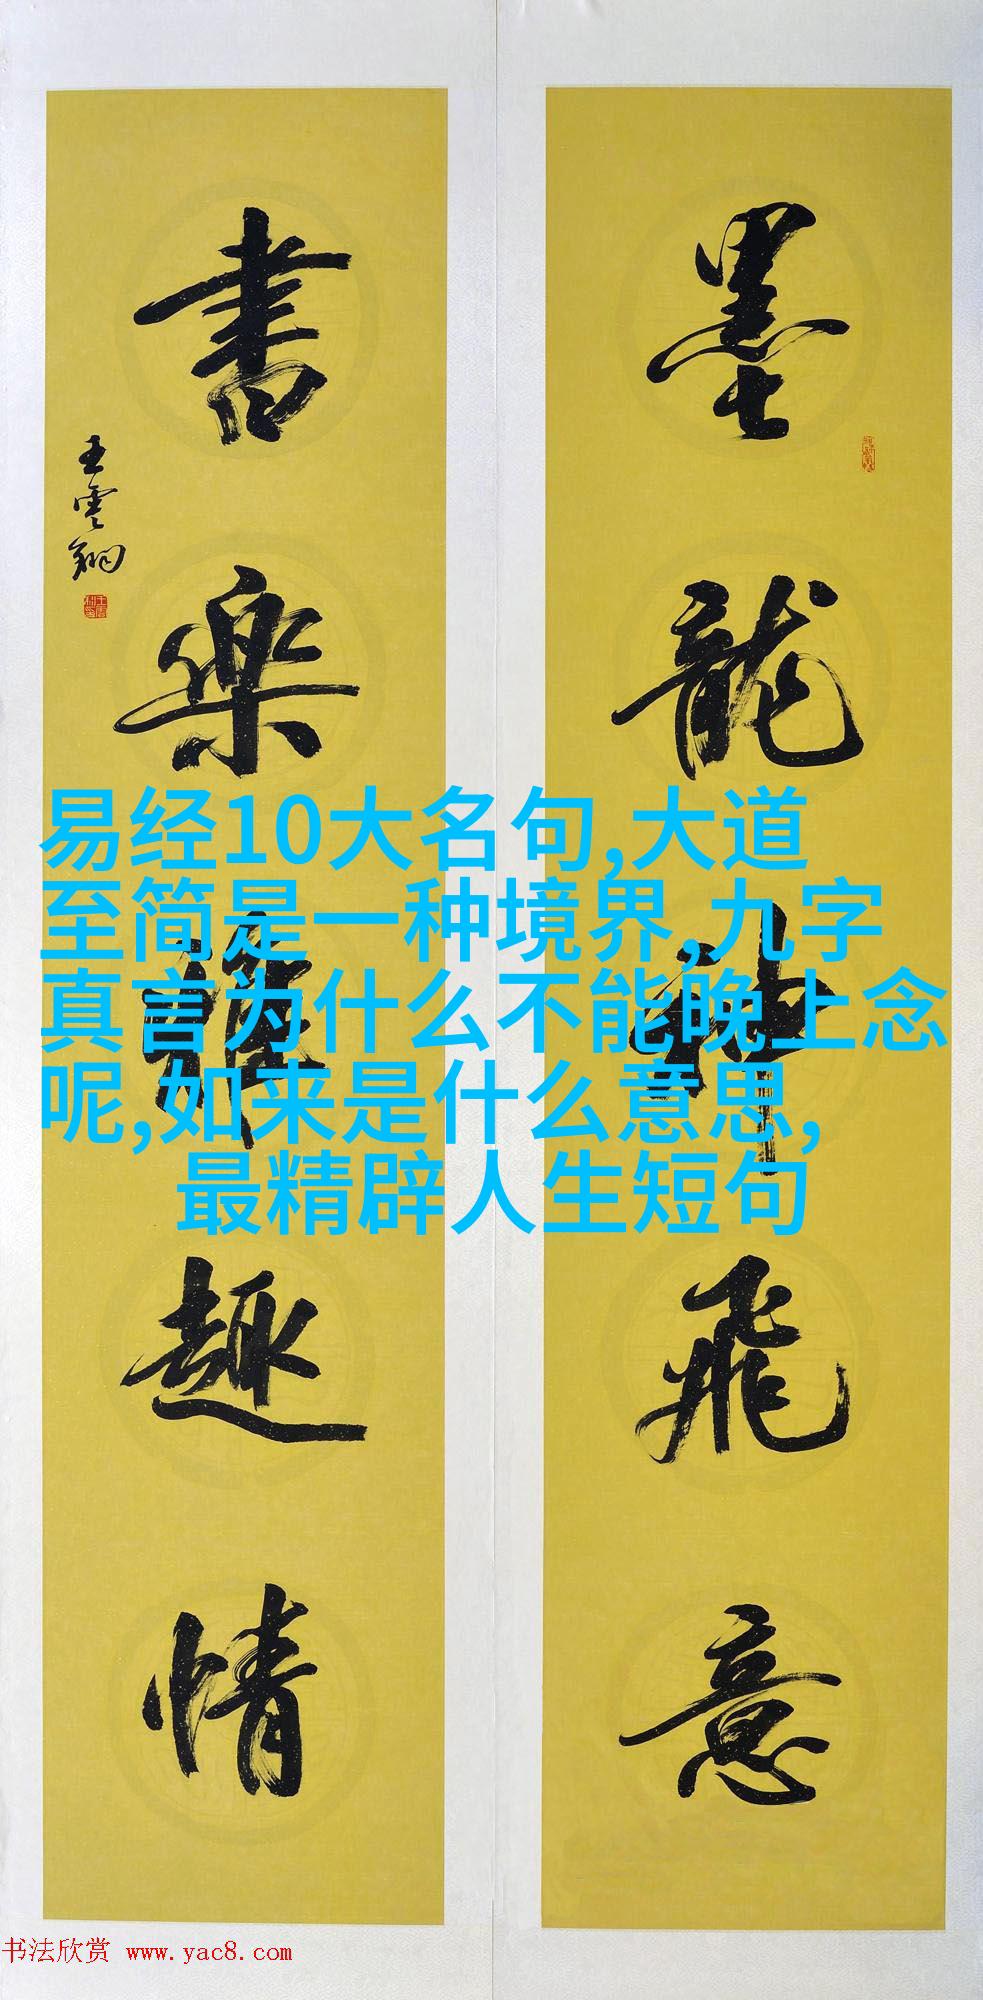 墨龍神飛意
書樂雅趣情
王雲翔
易经10大名句,大道
至简是一种境界,九字
真言为什么不能晚上念
呢,如来是什么意思,
最精辟人生短句
书法欣赏 www.yac8.com